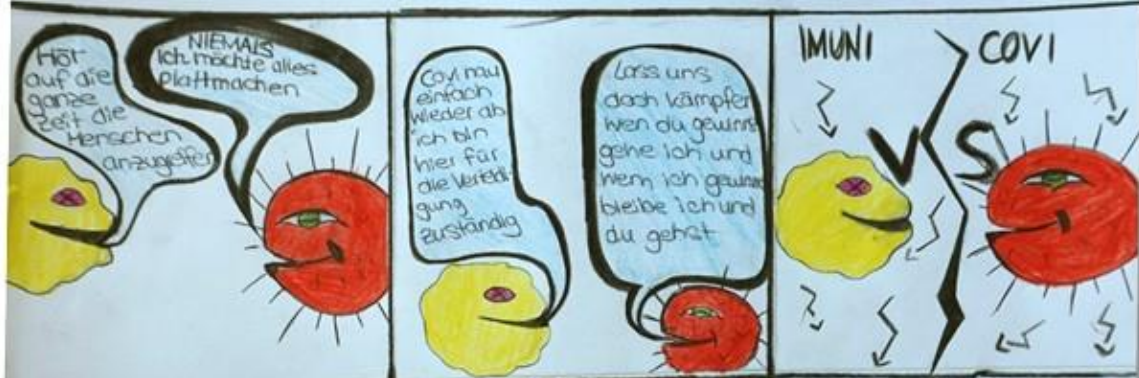 Hör
auf die
ganze
zeit die
Menschen
anzugeifen
NIEMALS
ich möchte alles
plattmachen
Covi hau
einfach
wieder ab
ich bin
hier für
die Verteidi-
gung
zuständig
Lass uns
doch kämpfen
wen du gewinnst
gehe ich und
wenn ich gewinne
bleibe ich und
du gehst
IMUNI
COVI
VS